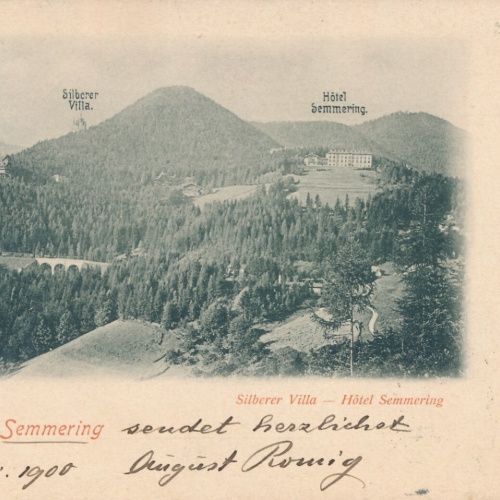 Silberer
Villa.
Hôtel
Semmering.
Silberer Villa — Hôtel Semmering
Semmering sendet herzlichst
1900 August Romig